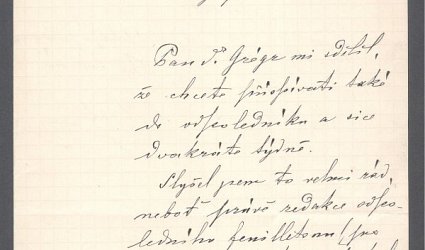 Pan Dr Grégr mi sdělil,
že chcete přispívati také
do odpoledníku a sice
dvakráte týdně.
Slyšel jsem to velmi rád,
neboť právě redakce odpo-
ledního feuilletonu